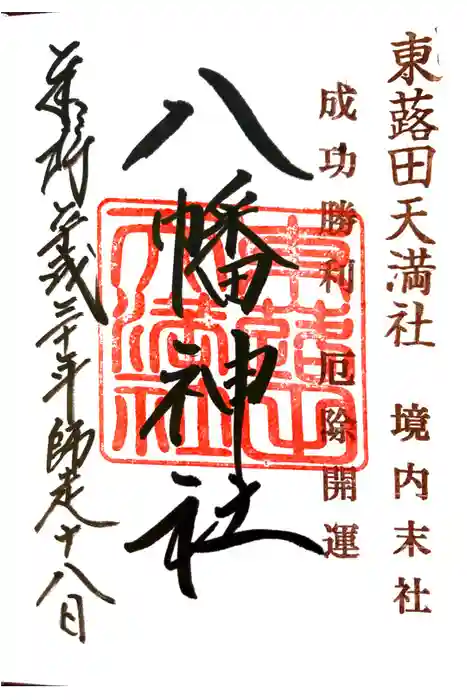 東蕗田天満社 境内末社
成功勝利 厄除開運
八幡神社
東蕗田天満社
業務 平成三十年師走十八日